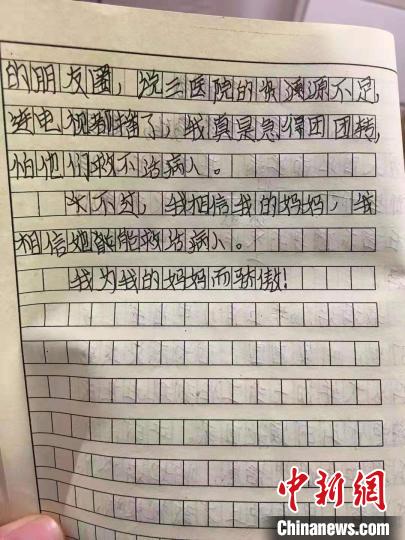 的朋友圈，说三医院的资源不足，
连电视都播了，我真是急得团团转，
怕他们救不活病人。
不过，我相信我的妈妈，我
相信她能救活病人。
我为我的妈妈而骄傲！
中新网
Chinanews.com